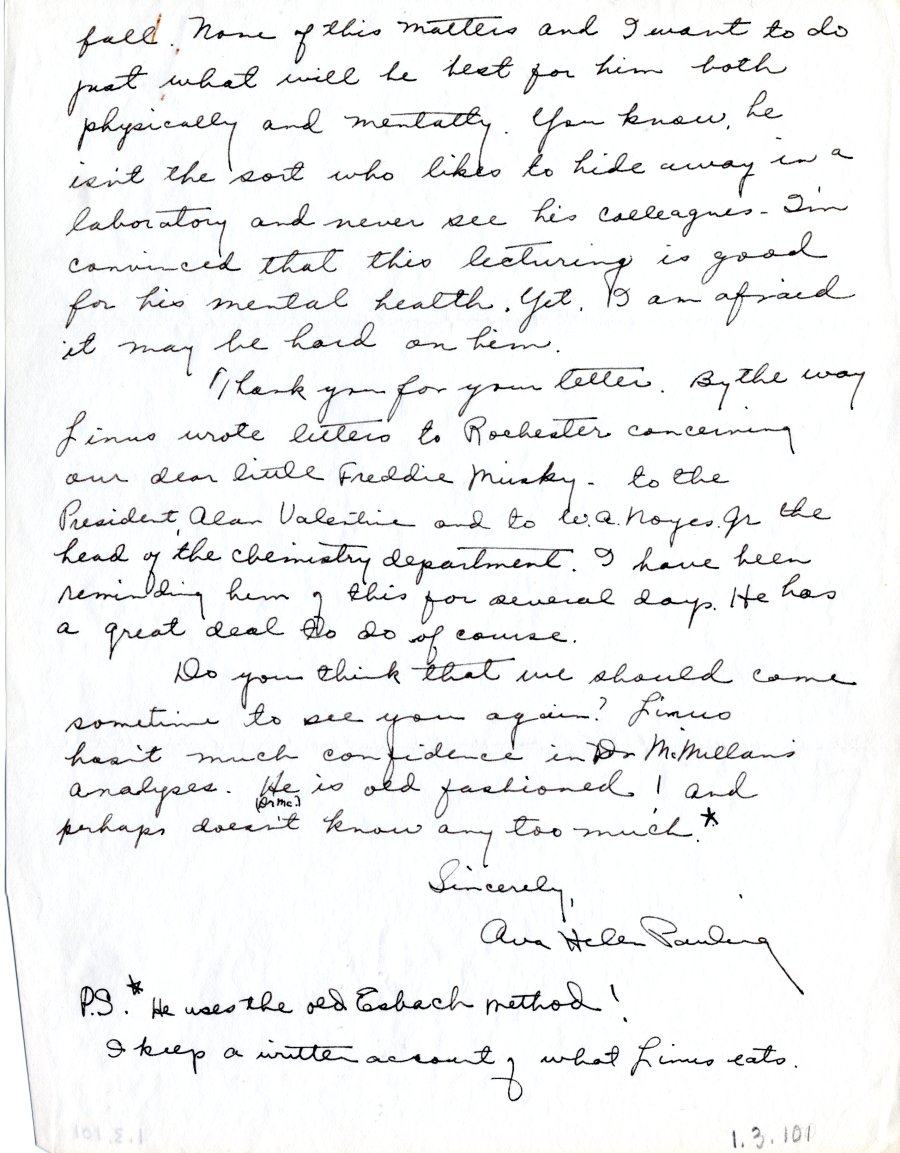 fall. None of this matters and I want to do
just what will be best for him both
physically and mentally. You know, he
isn't the sort who likes to hide away in a
laboratory and never see his colleagues - I'm
convinced that this lecturing is good
for his mental health. Yet, I am afraid
it may be hard on him.
Thank you for your letter. By the way
Linus wrote letters to Rochester concerning
our dear little Freddie Musky - to the
President, Alan Valentine and to W.A. Noyes Jr the
head of the chemistry department. I have been
reminding him of this for several days. He has
a great deal to do of course.
Do you think that we should come
sometime to see you again? Linus
hasn't much confidence in Dr McMillan's
analyses. He is old fashioned! and
(Dr Mc.)
perhaps doesn't know any too much.*
Sincerely,
Ava Helen Pauling
P.S.* He uses the old Esbach method!
I keep a written account of what Linus eats.
1.3.101